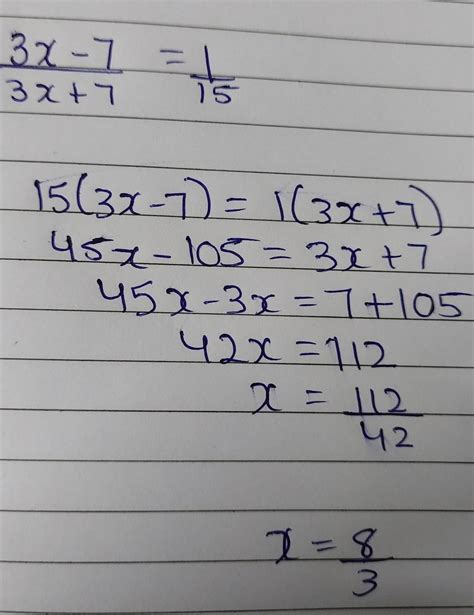 3x-7/3x+7 = 1/15
15(3x-7) = 1(3x+7)
45x-105 = 3x+7
45x-3x = 7+105
42x = 112
x = 112/42
x = 8/3